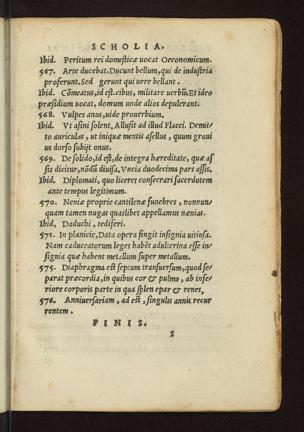 SCHOLIA.
Ibid. Peritum rei domesticæ uocat Oeconomicum.
567. Arte ducebat. Ducunt bellum, qui de industria
proferunt. Sed gerunt qui uere bellant.
Ibid. Cōmeatus, id est, cibus, militare uerbū. Et ideo
præsidium uocat, domum unde alios depulerant.
568. Vulpes anus, uide prouerbium.
Ibid. Vt asini solent, Allusit ad illud Flacci. Demit-
to auriculas, ut iniquæ mentis asellus, quum graui
us dorso subijt onus.
569. De solido, id est, de integra hæreditate, quæ as
sis dicitur, nōdū diuisa, Vncia duodecima pars assis.
Ibid. Diplomati, quo liceret consecrari sacerdotem
ante tempus legitimum.
570. Neniæ proprie cantilenæ funebres, nonnun-
quam tamen nugas quaslibet appellamus nænias.
Ibid, Daduchi, tediferi.
571. In planicie, Data opera fingit insignia uitiosa.
Nam caduceatorum leges habēt adulterina esse in-
signia quæ habent metallum super metallum.
575. Diaphragma est septum transuersum, quod se-
parat præcordia, in quibus cor & pulmo, ab infe-
riore corporis parte in qua splen epar & renes,
576. Anniuersariam, ad est, singulis annis recur
rentem.
FINIS.
S